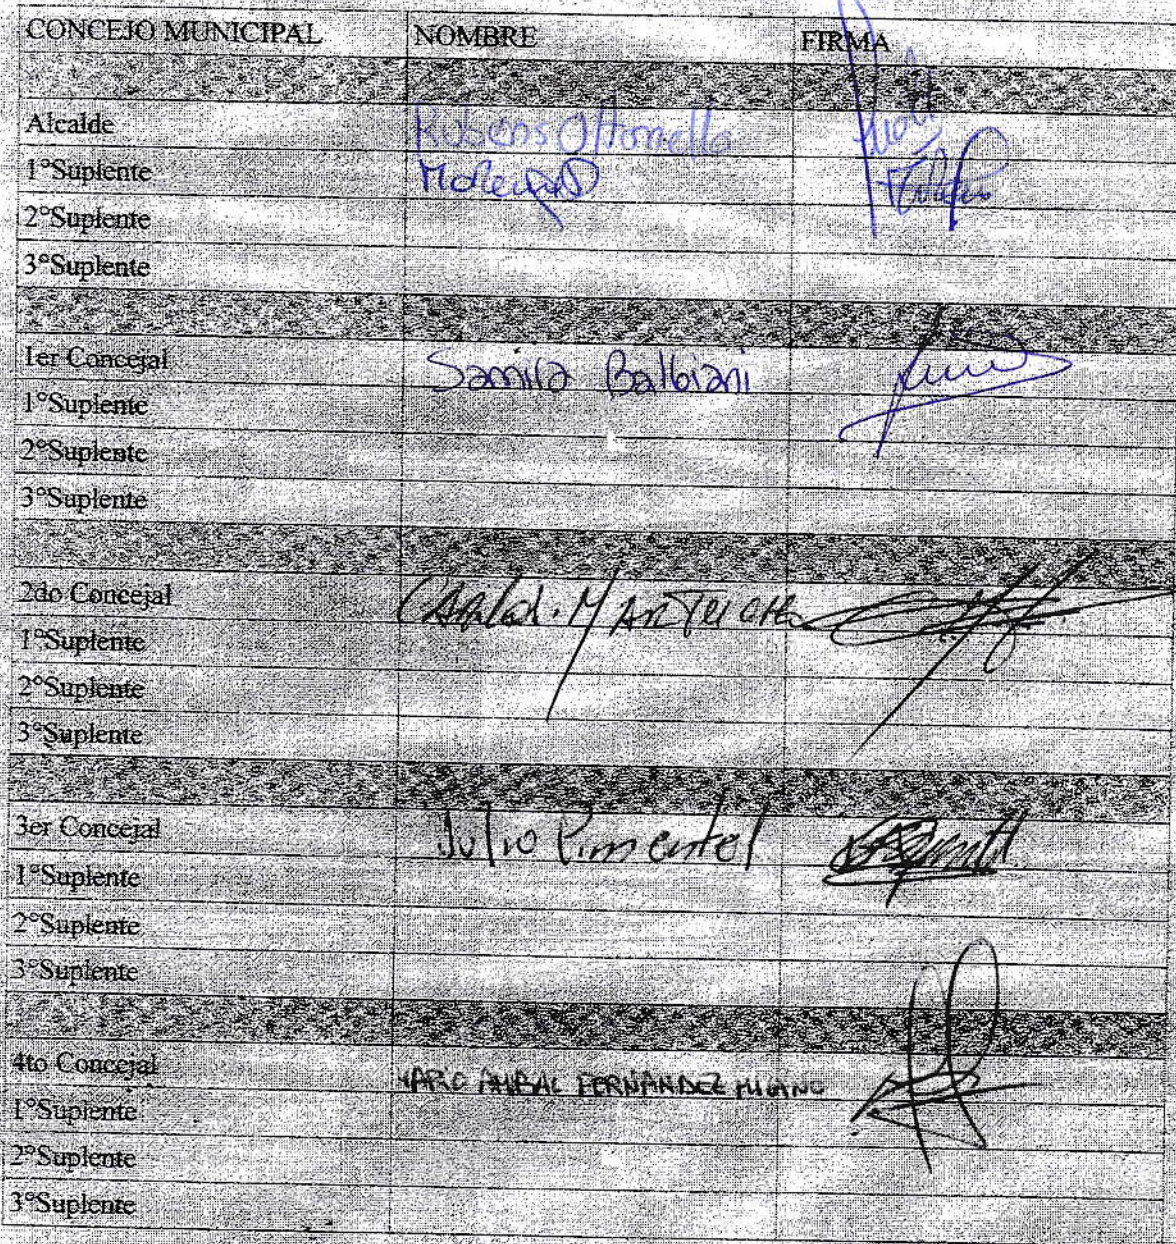 CONCEJO MUNICIPAL NOMBRE FIRMA
Alcalde Rubens Ottonello
1°Suplente
2°Suplente
3°Suplente
1er Concejal Samira Balbiani
1°Suplente
2°Suplente
3°Suplente
2do Concejal
1°Suplente
2°Suplente
3°Suplente
3er Concejal Julio Pimentel
1°Suplente
2°Suplente
3°Suplente
4to Concejal FERNANDEZ
1°Suplente
2°Suplente
3°Suplente